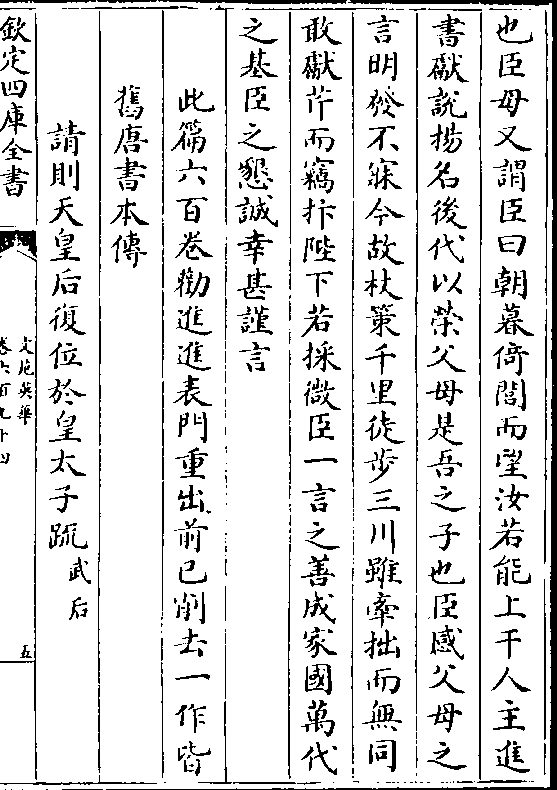 也臣母又謂臣曰朝暮倚閭而望汝若能上干人主進
書獻說揚名後代以榮父母是吾之子也臣感父母之
言明發不寐今故杖策千里徒步三川雖牽拙而無同
敢獻芹而竊抃陛下若採微臣一言之善成家國萬代
之基臣之懇誠幸甚謹言
此篇六百卷勸進進表門重出前已削去一作皆
舊唐書本傳
請則天皇后復位於皇太子疏武后
欽定四庫全書
文苑英華
卷六百九十四
五